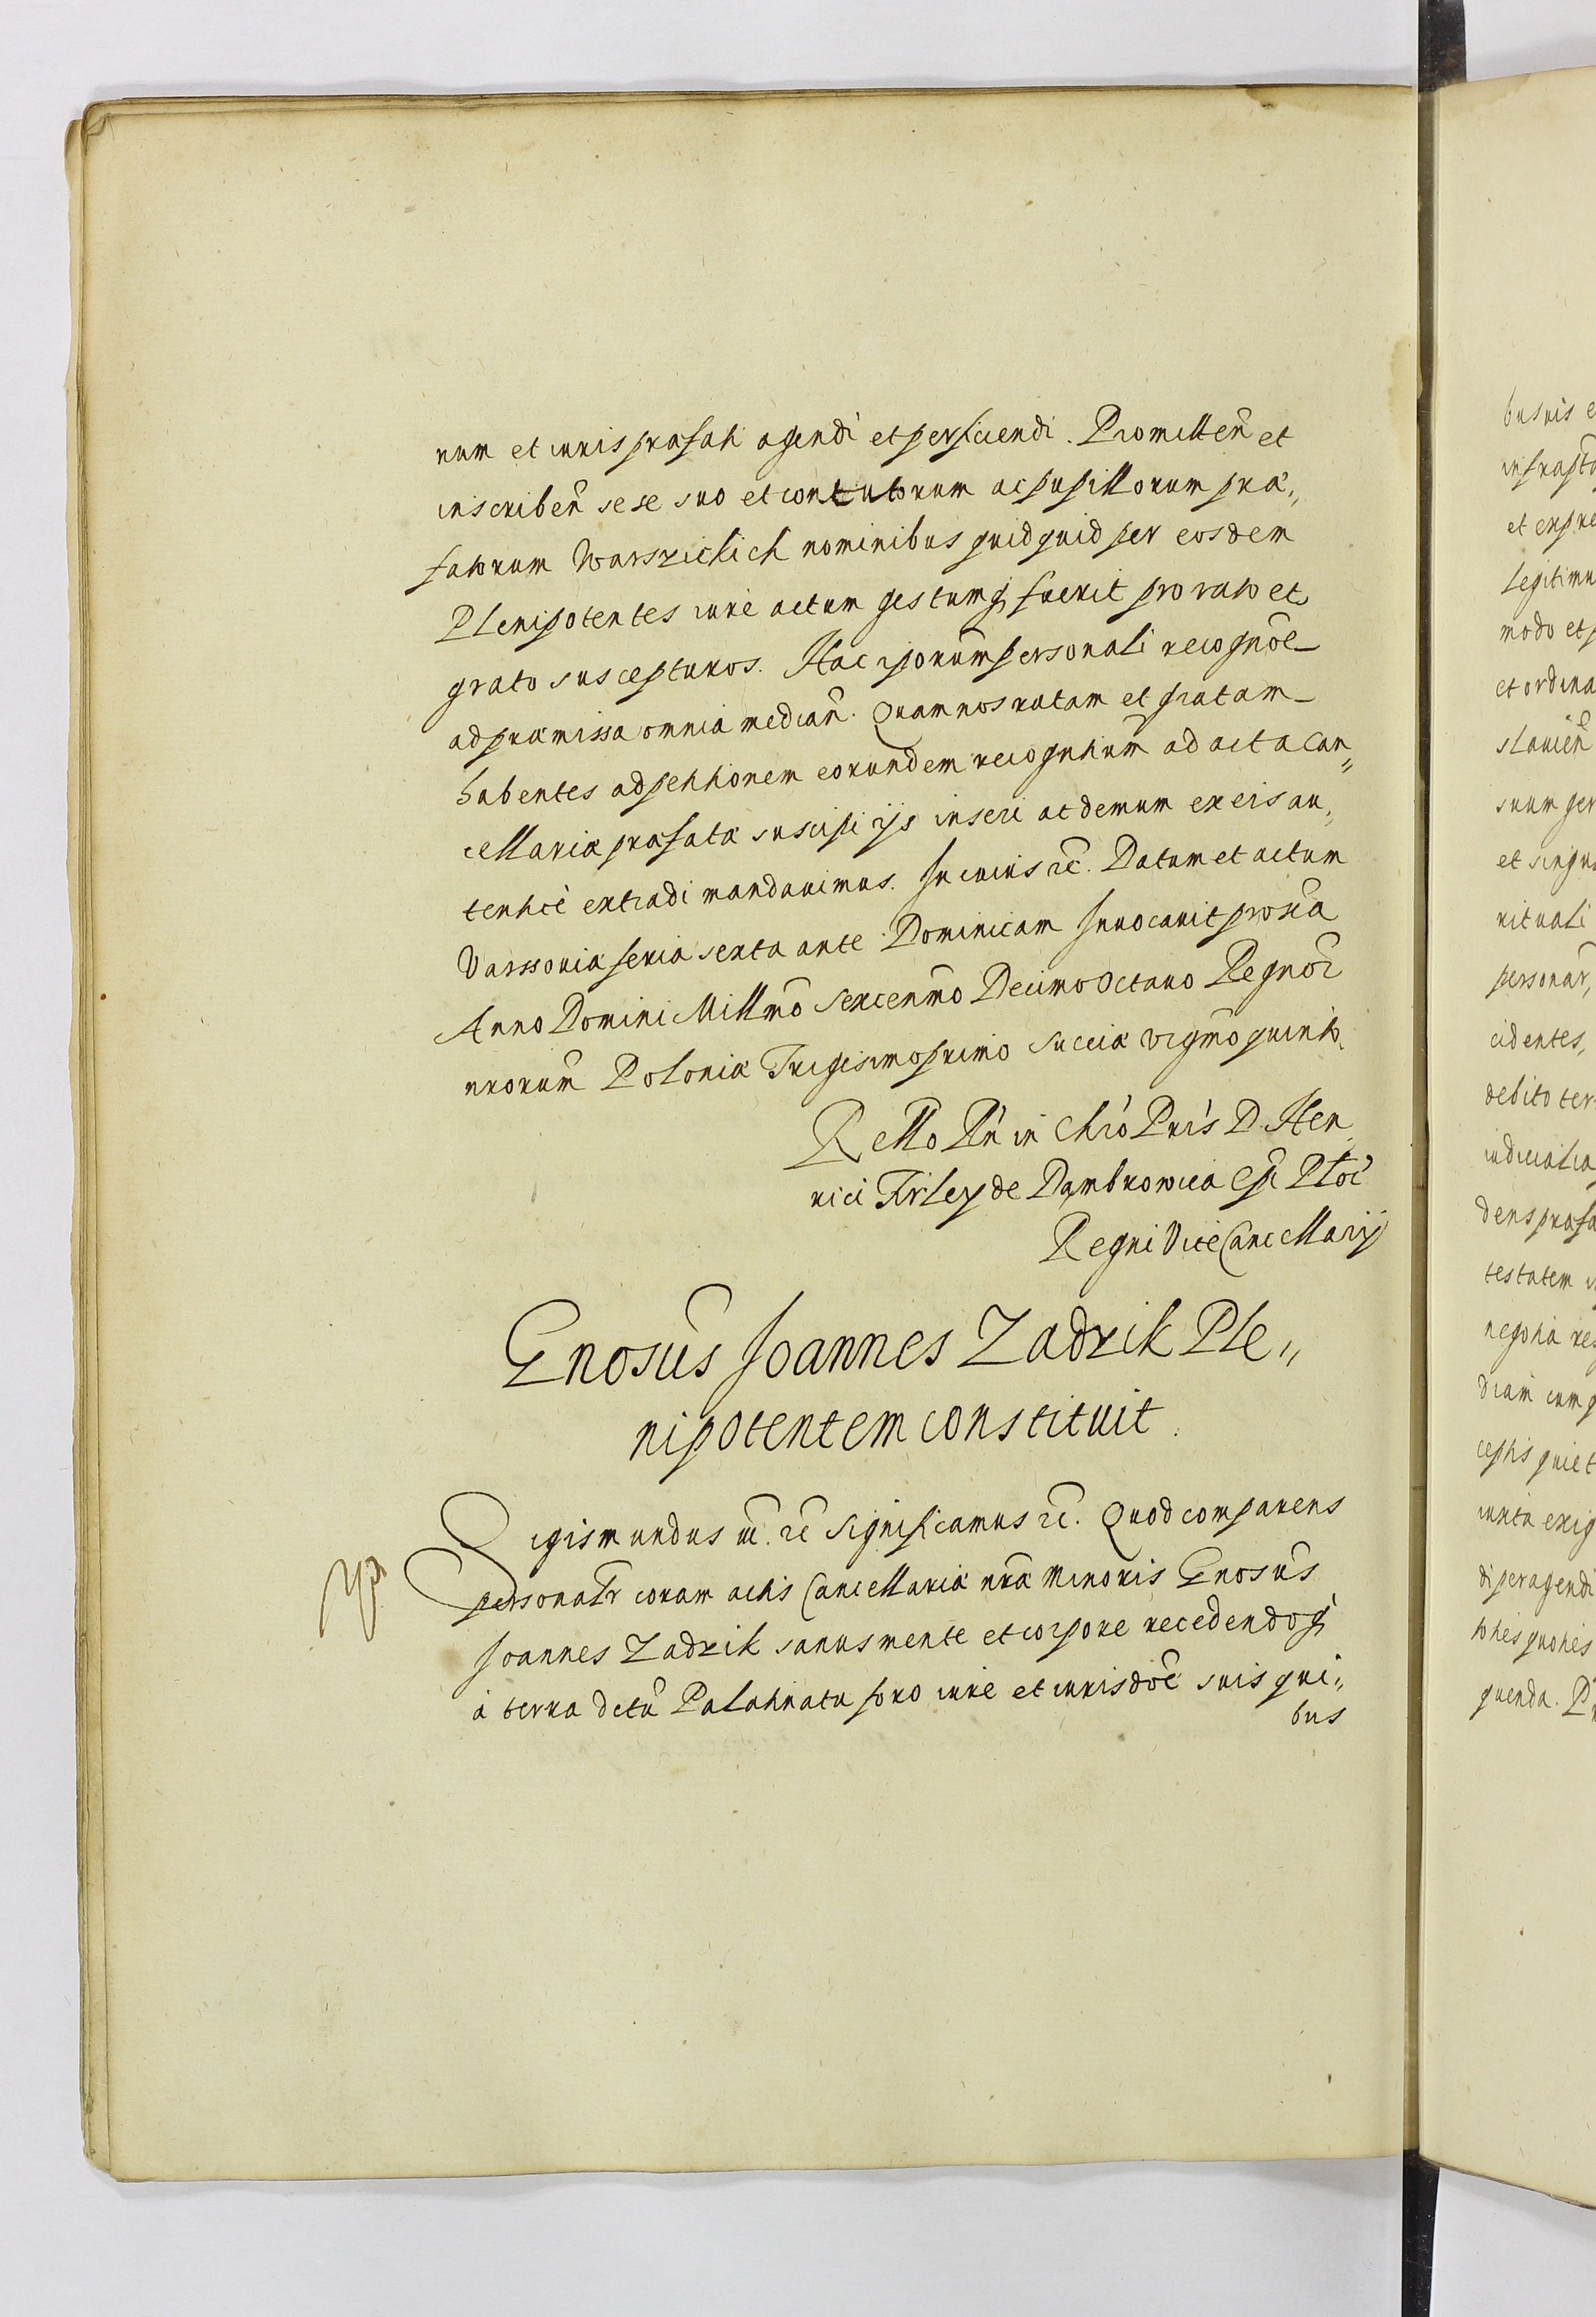 num et iuris præfati agendi et perficiendi. Promitteñ et
inscribeñ sese suo et contutorum ac pupillorum præ„
fatorum Warszickich nominibus quidquid per eosdem
Plenipotentes iure actum gestumq₃ fuerit pro rato et
grato suscepturos. Hac ipsorum̃ personali recognõe
ad præmissa omnia mediañ. Quam nos ratam et gratam
habentes ad petitionem eorundem recognitium̃ ad acta Can„
cellariæ præfatæ suscipi ijs inseri ac demum ex eis au„
tenticè extradi mandauimus. In cuius rẽ. Datum et actum
Varssouiæ feria sexta ante Dominicam Inuocauit proxĩa
Anno Domini Millm̃o Sexcenm̃o Decimo Octauo Regnor̃
nrorum̃ Poloniæ Trigesimo primo Sueciæ vigm̃o quinto.
Rello Rñ in Chrõ Pris D. Hen
rici Firley de Dąmbrowica Epĩ Ploc̃
Regni Vice Cancellarij
Gnosus̃ Joannes Zadzik Ple„
nipotentem constituit.
Sigismundus iiĩ. rẽ Significamus rẽ. Quod comparens
personalr̃ coram actis Cancellariæ nrã Minoris Gnosus̃
Joannes Zadzik sanus mente et corpore recedendoq₃
à terra dctũ Palatinatu foro iure et iurisdoẽ suis qui„
bus
busuis e
infrapt̃o
et expre
legitimu
modo et p
et ordina
slauieñ
suum ger
et singu
rituali
personar̃,
cidentes,
debito ter
iudicialia
dens præfa
testatem
negotia re
diam̃ cum
ceptis quiet
iuxta exig
di peragendi
toties quoties
quenda. P